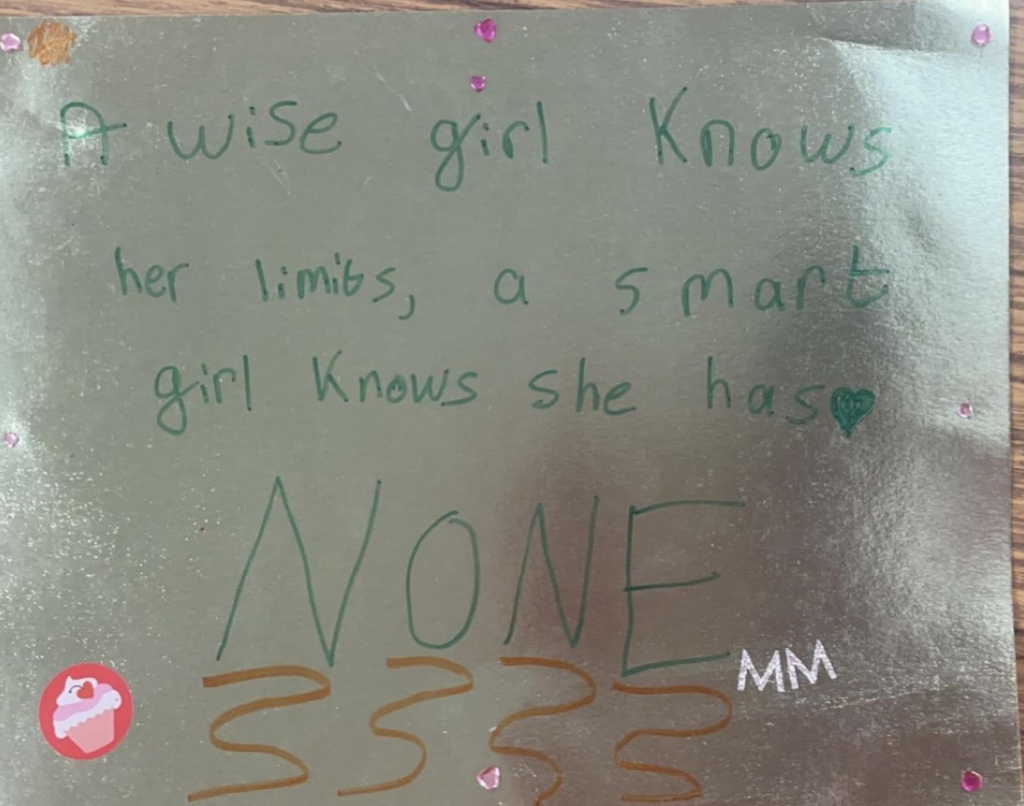 A wise girl Knows
her limits, a smart
girl Knows she has
NONE
MM